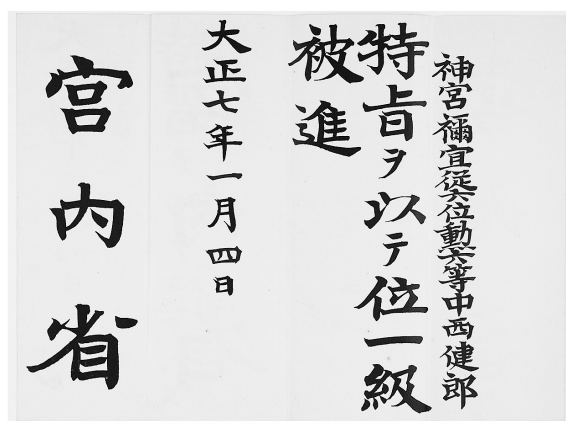 神宮禰宜從六位勳六等中西健郎
特旨ヲ以テ位一級
被進
大正七年一月四日
宮内省